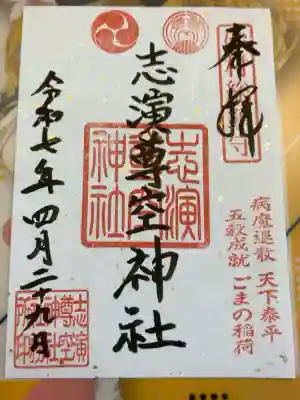 奉拝
志演尊空神社
令和七年四月二十九日
病魔退散 天下泰平
五穀成就 ごまの稲荷
志演
尊空
神社